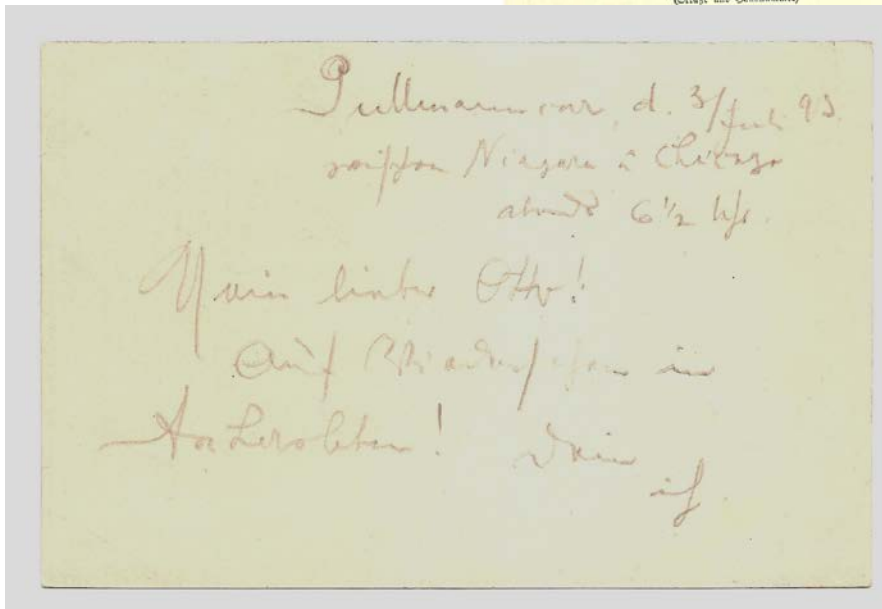 Pullmann car, d. 3/Juli 93.
zwischen Niagara u Chicago
abends 6½ Uhr.
Mein lieber Otto!
Auf Wiedersehen in
Aschersleben! Dein
ich